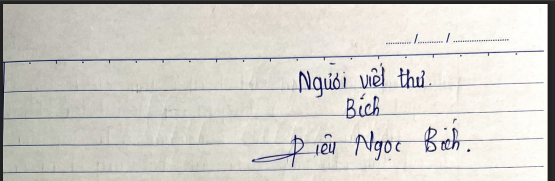 ....... / ....... / ..............
Người viết thư.
Bích
Diêu Ngọc Bích.